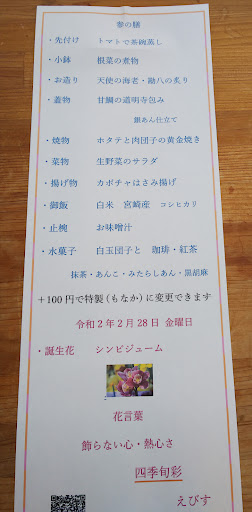 葵の膳
・先付け　トマトで茶碗蒸し
・小鉢　根菜の煮物
・お造り　天使の海老・勘八の炙り
・蓋物　甘鯛の道明寺包み
銀あん仕立て
・焼物　ホタテと肉団子の黄金焼き
・菜物　生野菜のサラダ
・揚げ物　カボチャはさみ揚げ
・御飯　白米　宮崎産　コシヒカリ
・止椀　お味噌汁
・水菓子　白玉団子と　珈琲・紅茶
抹茶・あんこ・みたらしあん・黒胡麻
＋100円で特製（もなか）に変更できます
令和2年2月28日 金曜日
・誕生花　シンビジューム
花言葉
飾らない心・熱心さ
四季旬彩
えびす